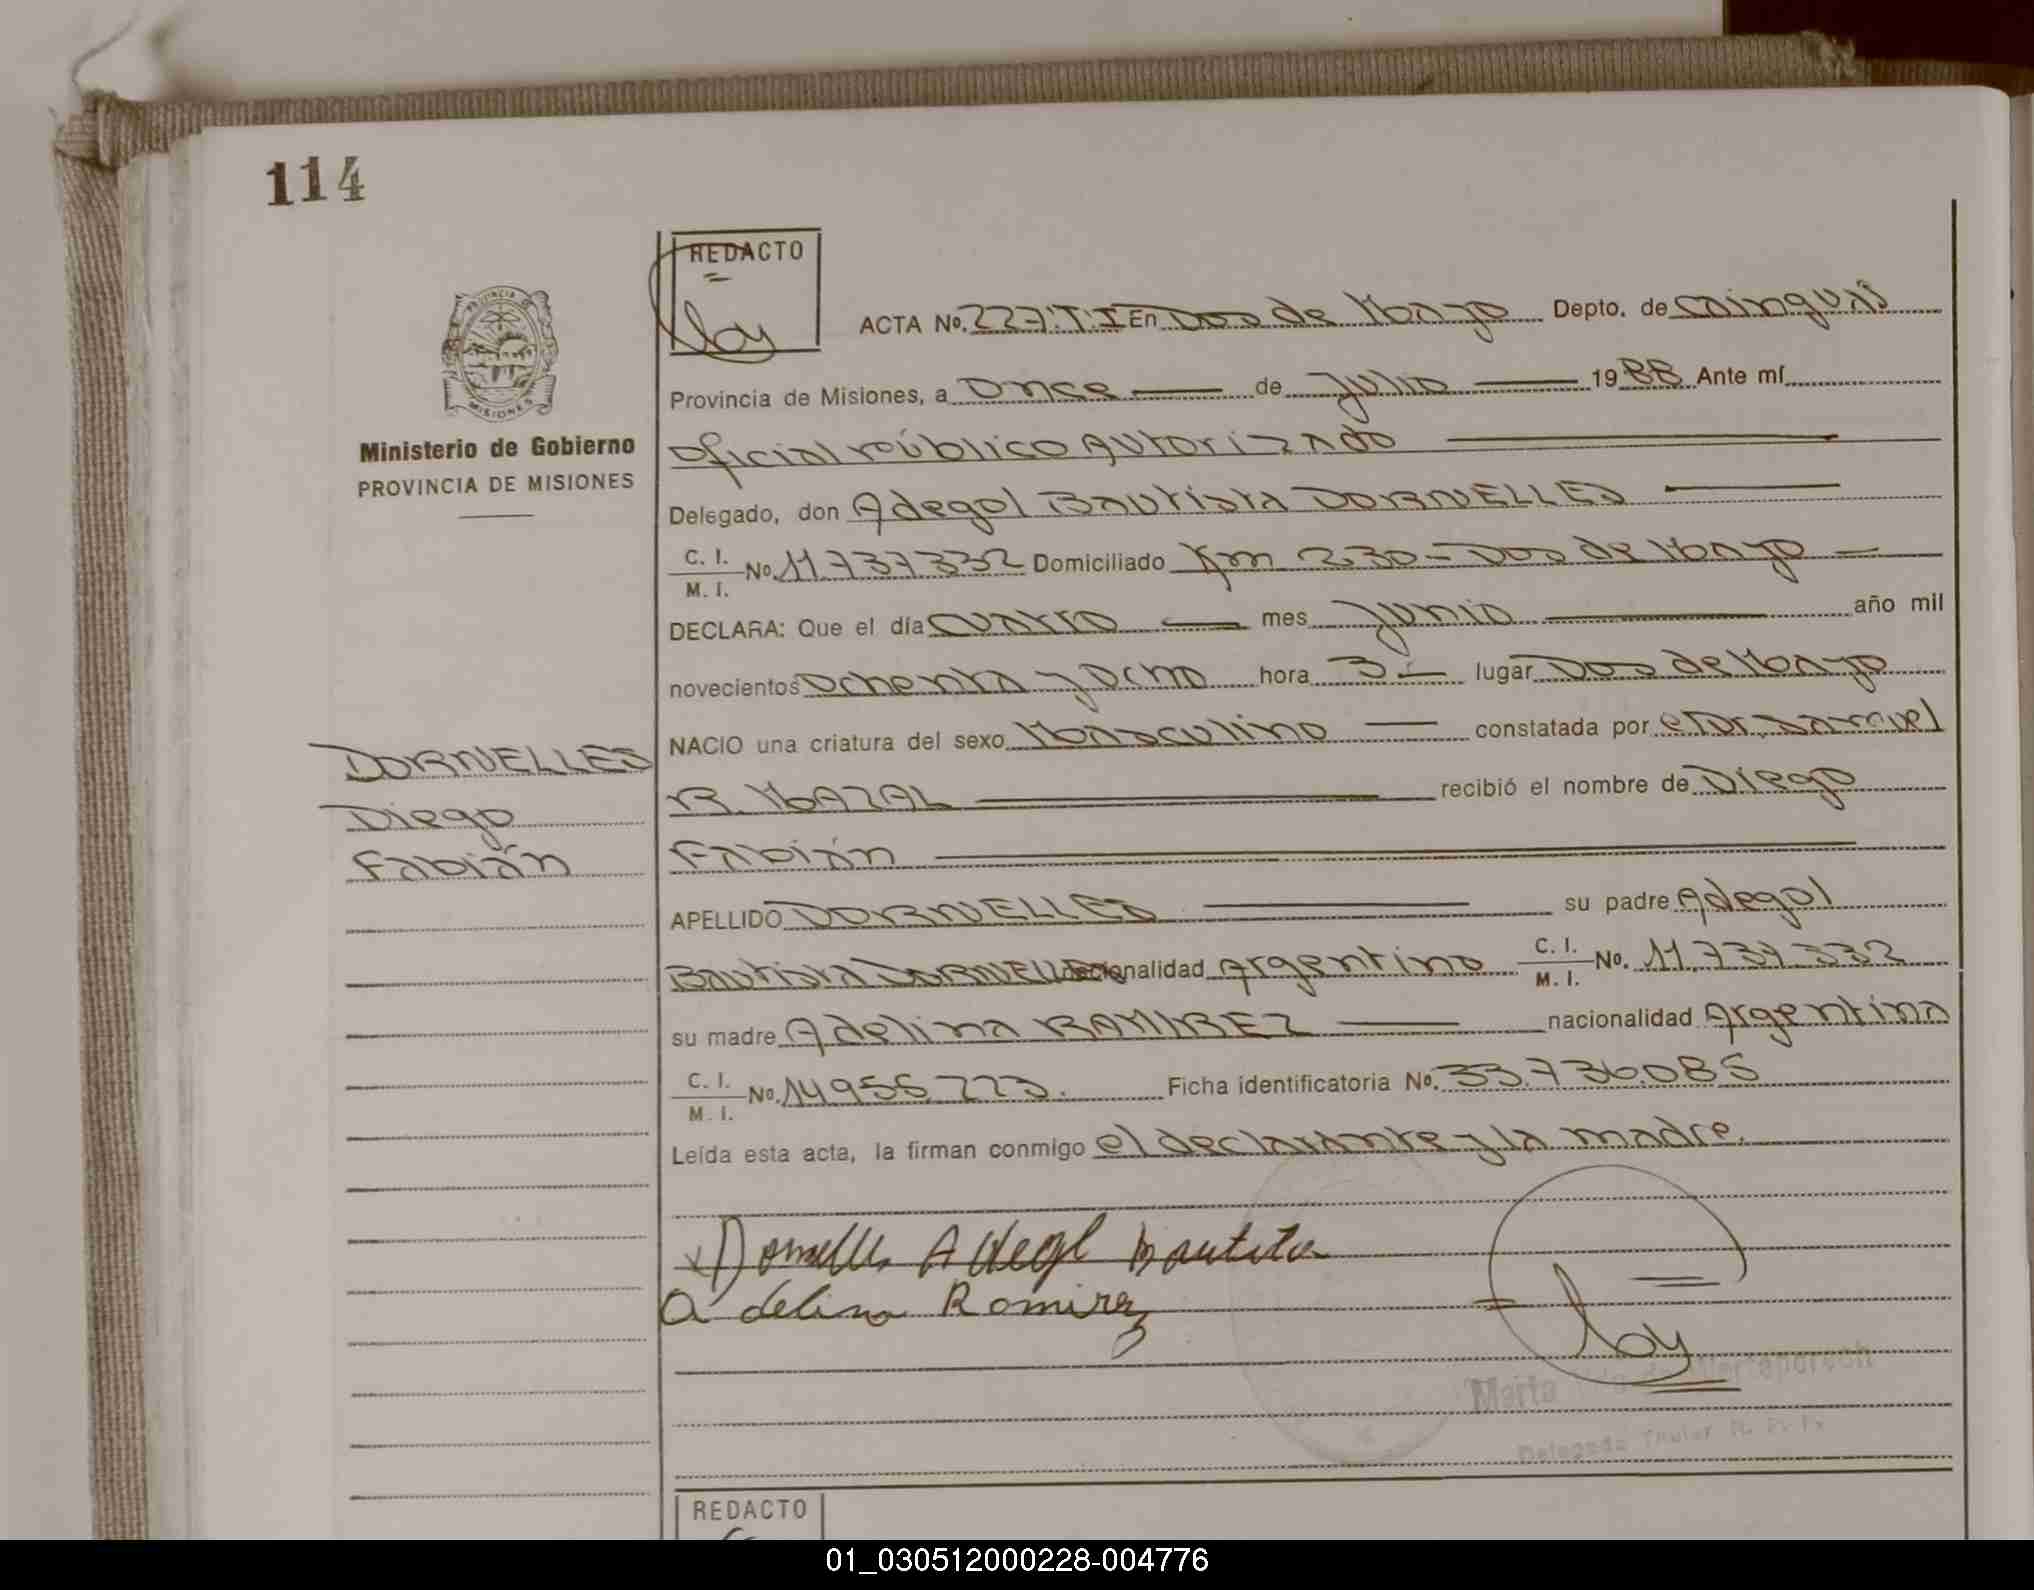 114
REDACTO
ACTA No. 227.T.I En Dos de Mayo Depto. de Cainguás
Provincia de Misiones, a once de Julio 1988 Ante mí
Oficial Público Autorizado
Ministerio de Gobierno
PROVINCIA DE MISIONES
Delegado, don Adegol Bautista DORNELLES
C. I. / M. I. No. 11.737.332 Domiciliado Km 230 - Dos de Mayo
DECLARA: Que el día cuatro mes Junio año mil
novecientos ochenta y ocho hora 3 lugar Dos de Mayo
NACIO una criatura del sexo Masculino constatada por
R. MAZAL recibió el nombre de Diego
Fabián
DORNELLES
Diego
Fabián
APELLIDO DORNELLES su padre Adegol
Bautista DORNELLES nacionalidad Argentino C. I. / M. I. No. 11.737.332
su madre Adelina RAMIREZ nacionalidad Argentina
C. I. / M. I. No. 14.955.273. Ficha identificatoria No. 33.736.085
Leída esta acta, la firman conmigo el declarante y la madre.
Dornelles Adegol Bautista
Adelina Romirez
Marta
Delegada Titular R. P. P.
REDACTO
PROVINCIA DE
MISIONES
01_030512000228-004776